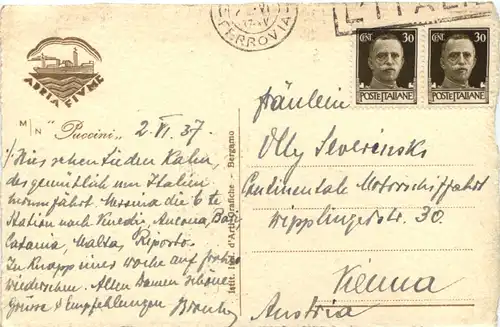 FERROVIA
CENT. 30
POSTE ITALIANE
CENT. 30
POSTE ITALIANE
ADRIA FIUME
M/N "Puccini" 2. VI. 37.
Hier sehen Sie den Kahn,
der gemütlich um Italien
herumfährt. Messina die 6te
Station nach Venedig, Ancona, Bari,
Catania, Malta, Riposto.
In knapp einer Woche auf frohes
Wiedersehen. Allen Damen schöne
Grüsse & Empfehlungen
Istit. Ital. d'Arti Grafiche - Bergamo
Fräulein
Olly Severinski
Continentale Motorschiffahrt
Wipplingerstr. 30.
Vienna
Austria